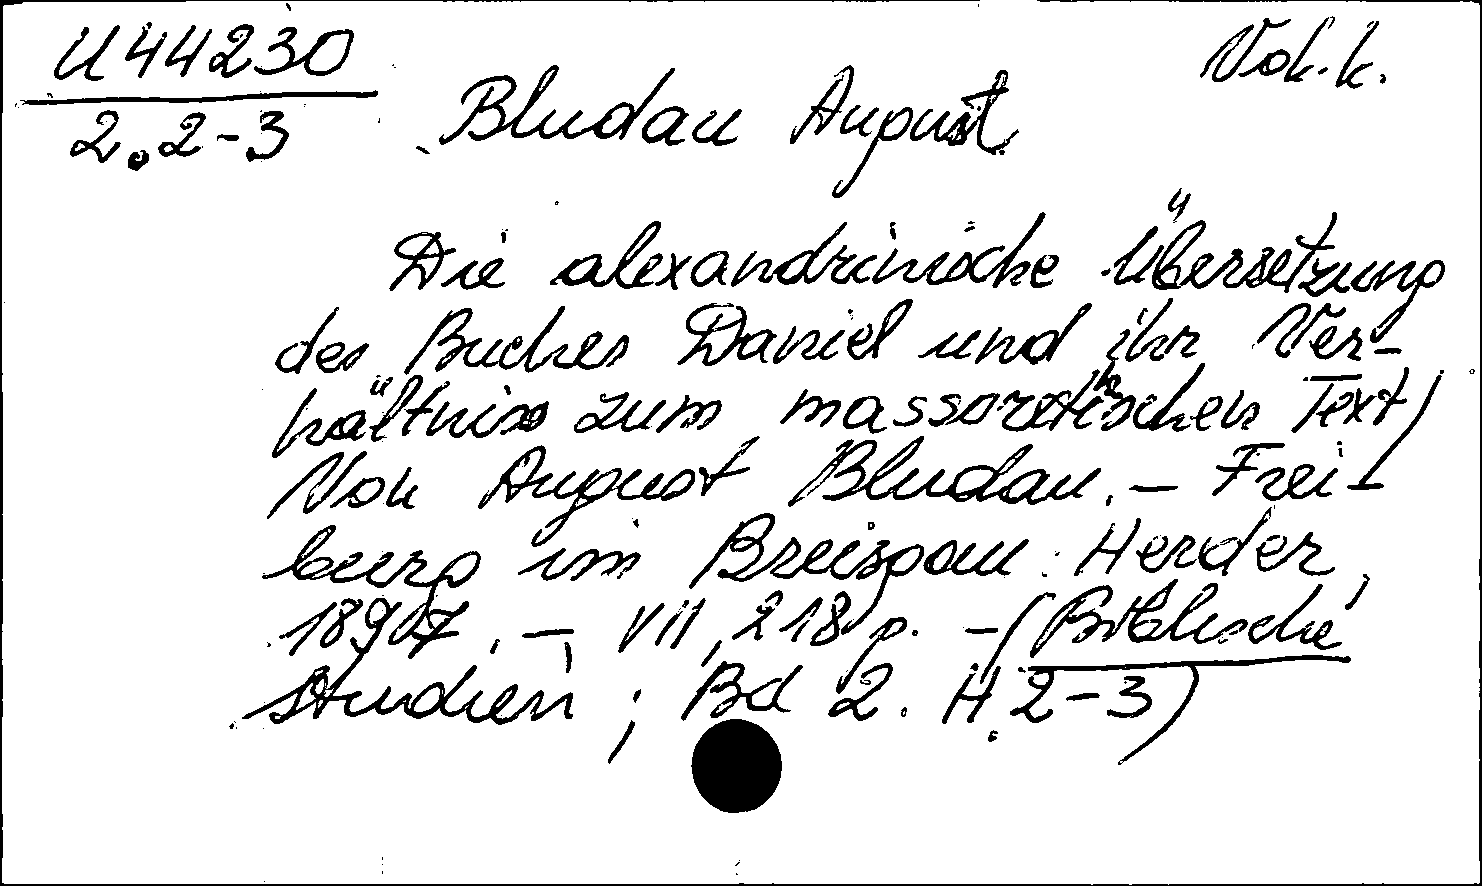 U 44230
2. 2-3
Vok. k.
Bludau August
Die alexandrinische Übersetzung
des Buches Daniel und ihr Ver-
hältniss zum massoretischen Text/
Von August Bludau. – Frei-
burg im Breisgau : Herder,
1897. – VII, 218 p. – (Biblische
Studien ; Bd 2. H. 2-3)